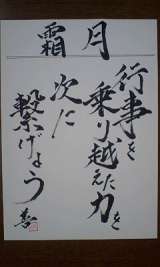 霜月
行事を
乗り越えた力を
次に
繋げよう